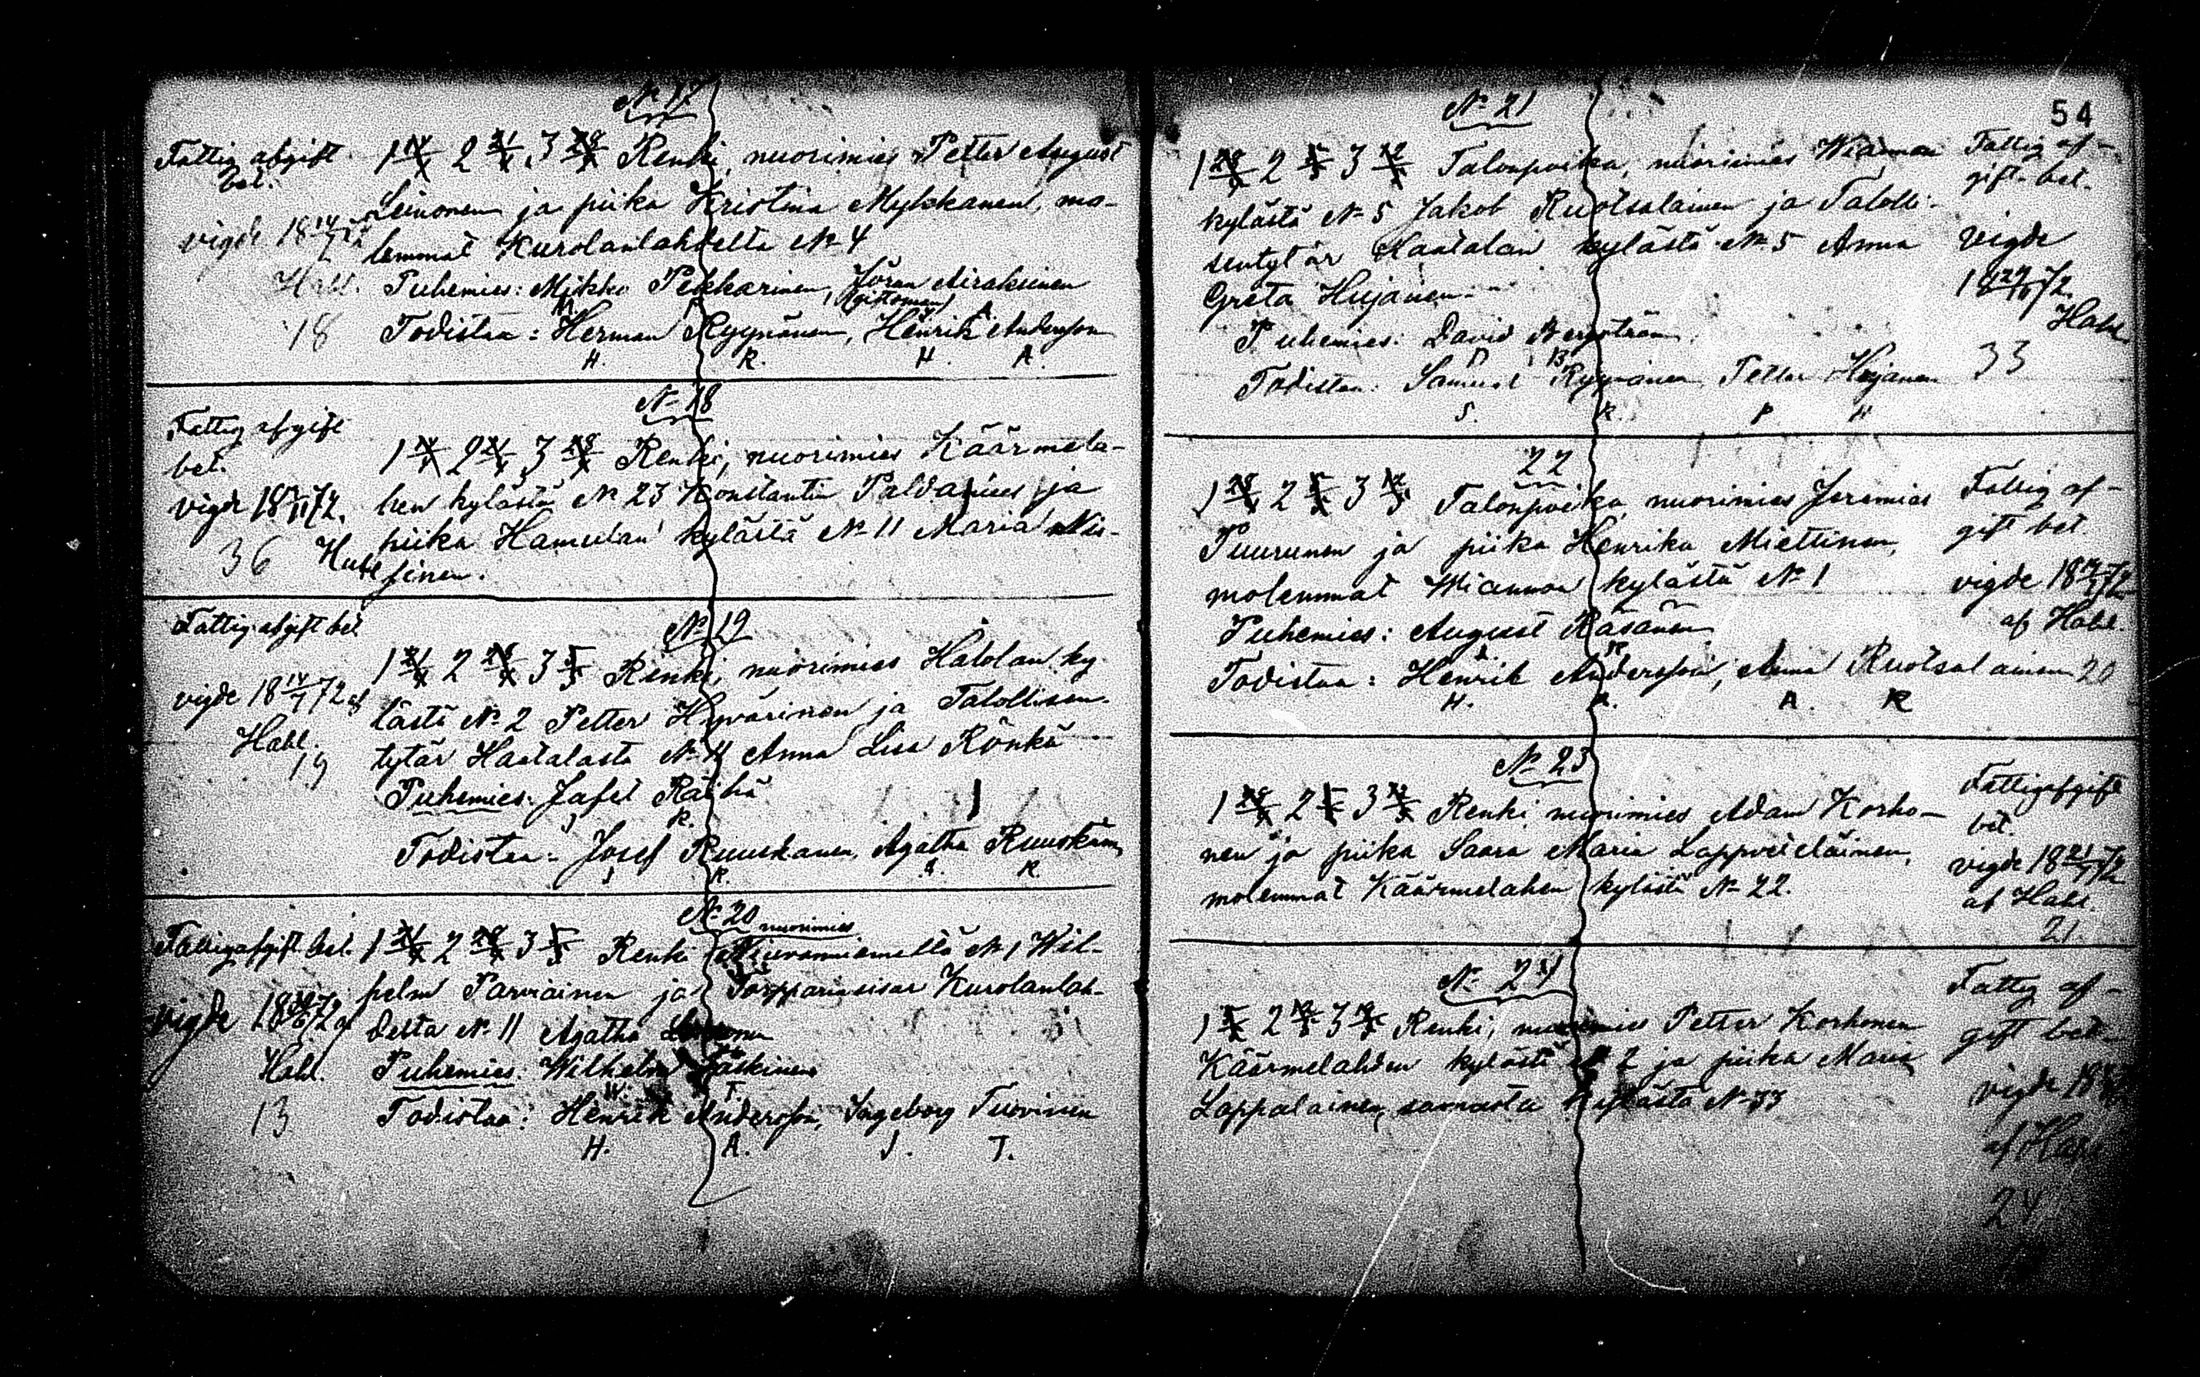 N. 17
Fattig afgift bet.
vigde 18 14/7 72
Habl.
18
1 2 3 Renki, nuorimies Petter August
Leinonen ja piika Kristina Mykkänen, mo-
lemmat Kurolanlahdelta N. 4
Puhemies: Mikko Pekkarinen, Jöran Airaksinen
Todistaa: Herman Ryynänen, Henrik Andersson
H. R. H. A.
N. 18
Fattig afgift
bet.
vigde 18 72.
36 Habl
1 2 3 Renki, nuorimies Käärmela-
hen kylästä N. 23 Konstantin Paldanius ja
piika Hamulan kylästä N. 11 Maria Nis-
sinen.
N. 19
Fattig afgift bet
vigde 18 14/7 72 af
Habl.
19
1 2 3 Renki, nuorimies Halolan ky
lästä N. 2 Petter Hyvärinen ja Talollisen-
tytär Haatalasta N. 4 Anna Lisa Rönkä
Puhemies: Jafet Räihä
J R.
Todistaa: Josef Ruuskanen, Agatha Ruuskanen
J R. A. R.
N. 20
Fattigafgift bet.
vigde 18 72 af
Habl.
13
1 2 3 Renki nuorimies N. 1 Wil-
helm Parviainen ja Torpparinsisar Kurolanlah-
delta N. 11 Agatha
Puhemies: Wilhelm
W. T.
Todistaa: Henrik Andersson, Ingeborg Tuovinen
H. A. I. T.
54
N. 21
1 2 3 Talonpoika, nuorimies Wiannan
kylästä N. 5 Jakob Ruotsalainen ja Talolli-
sentytär Haatalan kylästä N. 5 Anna
Greta Hujanen
Puhemies: David Bergström
D B
Todistaa: Samuel Ryynänen, Petter Hujanen
S. R. P H
Fattig af-
gift bet.
vigde
18 72.
Habl
33
22
1 2 3 Talonpoika, nuorimies Jeremias
Puurunen ja piika Henrika Miettinen,
molemmat Wiannon kylästä N. 1
Puhemies: August Räsänen
A. R
Todistaa: Henrik Andersson, Anna Ruotsalainen
H. A. A. R
Fattig af-
gift bet.
vigde 18 72
af Habl.
20
N. 23
1 2 3 Renki, nuorimies Adam Korho-
nen ja piika Saara Maria Lappveteläinen,
molemmat Käärmelahen kylästä N. 22.
Fattigafgift
bet.
vigde 18 21/7 72
af Habl.
21.
N. 24
1 2 3 Renki, nuorimies Petter Korhonen
Käärmelahden kylästä N. 2 ja piika Maria
Lappalainen, samasta kylästä N. 33
Fattig af-
gift bet.
vigde 18
af Habl
24